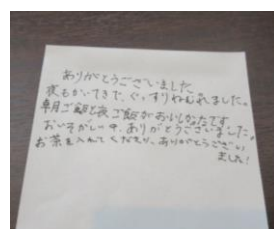 ありがとうございました
夜もかいてきで、ぐっすりねむれました。
朝ご飯と夜ご飯がおいしかったです
おいそがしい中、ありがとうございました。
お茶を入れてくださり、ありがとうござい
ました!